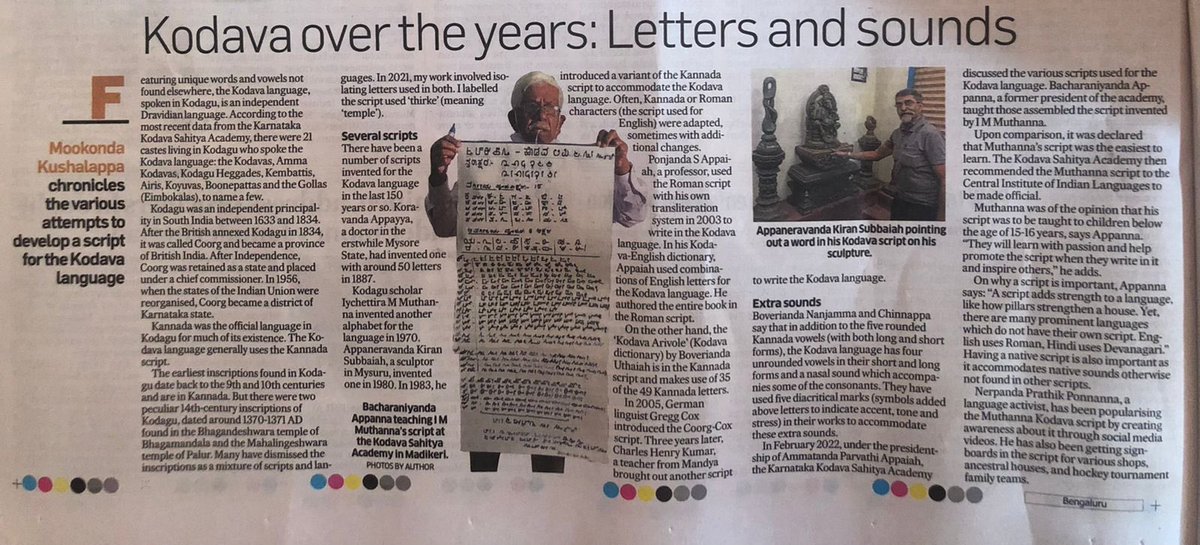 Kodava over the years: Letters and sounds
Mookonda
Kushalappa
chronicles
the various
attempts to
develop a script
for the Kodava
language
Featuring unique words and vowels not
found elsewhere, the Kodava language,
spoken in Kodagu, is an independent
Dravidian language. According to the
most recent data from the Karnataka
Kodava Sahitya Academy, there were 21
castes living in Kodagu who spoke the
Kodava language: the Kodavas, Amma
Kodavas, Kodagu Heggades, Kembattis,
Airis, Koyuvas, Boonepattas and the Gollas
(Eimbokalas), to name a few.
Kodagu was an independent principal-
ity in South India between 1633 and 1834.
After the British annexed Kodagu in 1834,
it was called Coorg and became a province
of British India. After Independence,
Coorg was retained as a state and placed
under a chief commissioner. In 1956,
when the states of the Indian Union were
reorganised, Coorg became a district of
Karnataka state.
Kannada was the official language in
Kodagu for much of its existence. The Ko-
dava language generally uses the Kannada
script.
The earliest inscriptions found in Koda-
gu date back to the 9th and 10th centuries
and are in Kannada. But there were two
peculiar 14th-century inscriptions of
Kodagu, dated around 1370-1371 AD
found in the Bhagandeshwara temple of
Bhagamandala and the Mahalingeshwara
temple of Palur. Many have dismissed the
inscriptions as a mixture of scripts and lan-
guages. In 2021, my work involved iso-
lating letters used in both. I labelled
the script used 'thirke' (meaning
'temple').
Several scripts
There have been a
number of scripts
invented for the
Kodava language
in the last 150
years or so. Kora-
vanda Appayya,
a doctor in the
erstwhile Mysore
State, had invented one
with around 50 letters
in 1887.
Kodagu scholar
Iychettira M Muthan-
na invented another
alphabet for the
language in 1970.
Appaneravanda Kiran
Subbaiah, a sculptor
in Mysuru, invented
one in 1980. In 1983, he
Bacharaniyanda
Appanna teaching I M
Muthanna's script at
the Kodava Sahitya
Academy in Madikeri.
PHOTOS BY AUTHOR
introduced a variant of the Kannada
script to accommodate the Kodava
language. Often, Kannada or Roman
characters (the script used for
English) were adapted,
sometimes with addi-
tional changes.
Ponjanda S Appai-
ah, a professor, used
the Roman script
with his own
transliteration
system in 2003 to
write in the Kodava
language. In his Koda-
va-English dictionary,
Appaiah used combina-
tions of English letters for
the Kodava language. He
authored the entire book in
the Roman script.
On the other hand, the
'Kodava Arivole' (Kodava
dictionary) by Boverianda
Uthaiah is in the Kannada
script and makes use of 35
of the 49 Kannada letters.
In 2005, German
linguist Gregg Cox
introduced the Coorg-Cox
script. Three years later,
Charles Henry Kumar,
a teacher from Mandya
brought out another script
Appaneravanda Kiran Subbaiah pointing
out a word in his Kodava script on his
sculpture.
to write the Kodava language.
Extra sounds
Boverianda Nanjamma and Chinnappa
say that in addition to the five rounded
Kannada vowels (with both long and short
forms), the Kodava language has four
unrounded vowels in their short and long
forms and a nasal sound which accompa-
nies some of the consonants. They have
used five diacritical marks (symbols added
above letters to indicate accent, tone and
stress) in their works to accommodate
these extra sounds.
In February 2022, under the president-
ship of Ammatanda Parvathi Appaiah,
the Karnataka Kodava Sahitya Academy
discussed the various scripts used for the
Kodava language. Bacharaniyanda Ap-
panna, a former president of the academy,
taught those assembled the script invented
by I M Muthanna.
Upon comparison, it was declared
that Muthanna's script was the easiest to
learn. The Kodava Sahitya Academy then
recommended the Muthanna script to the
Central Institute of Indian Languages to
be made official.
Muthanna was of the opinion that his
script was to be taught to children below
the age of 15-16 years, says Appanna.
"They will learn with passion and help
promote the script when they write in it
and inspire others," he adds.
On why a script is important, Appanna
says: "A script adds strength to a language,
like how pillars strengthen a house. Yet,
there are many prominent languages
which do not have their own script. Eng-
lish uses Roman, Hindi uses Devanagari."
Having a native script is also important as
it accommodates native sounds otherwise
not found in other scripts.
Nerpanda Prathik Ponnanna, a
language activist, has been popularising
the Muthanna Kodava script by creating
awareness about it through social media
videos. He has also been getting sign-
boards in the script for various shops,
ancestral houses, and hockey tournament
family teams.
Bengaluru